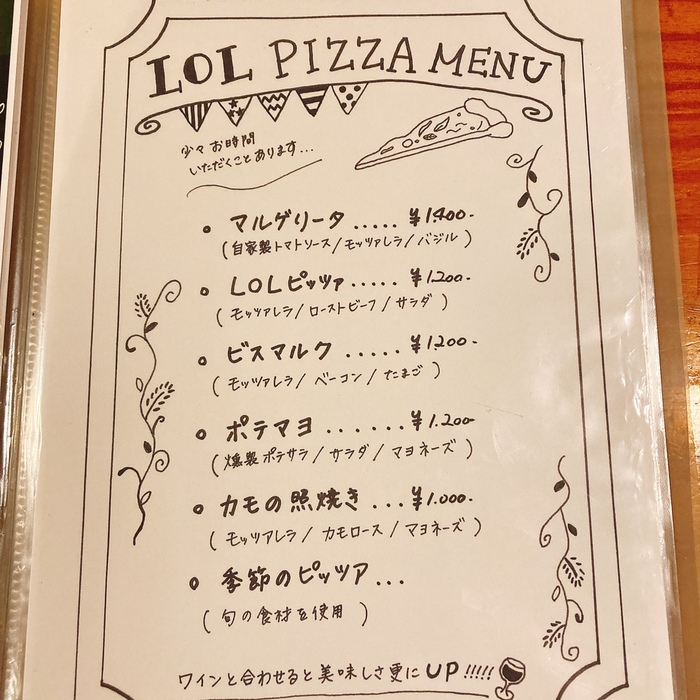 LOL PIZZA MENU
少々お時間
いただくことあります...
マルゲリータ ..... ¥1.400-
(自家製トマトソース/モッツァレラ/バジル)
LOLピッツァ ..... ¥1.200-
(モッツァレラ/ローストビーフ/サラダ)
ビスマルク ..... ¥1.200-
(モッツァレラ/ベーコン/たまご)
ポテマヨ ...... ¥1.200-
(燻製ポテサラ/サラダ/マヨネーズ)
カモの照焼き ... ¥1.000-
(モッツアレラ/カモロース/マヨネーズ)
季節のピッツア ...
(旬の食材を使用)
ワインと合わせると美味しさ更にUP!!!!!